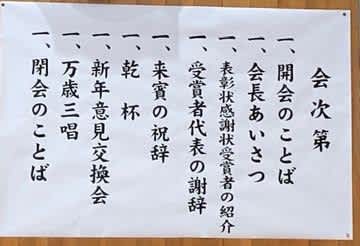 会次第
一、開会のことば
一、会長あいさつ
一、表彰状感謝状受賞者の紹介
一、受賞者代表の謝辞
一、来賓の祝辞
一、乾杯
一、新年意見交換会
一、万歳三唱
一、閉会のことば